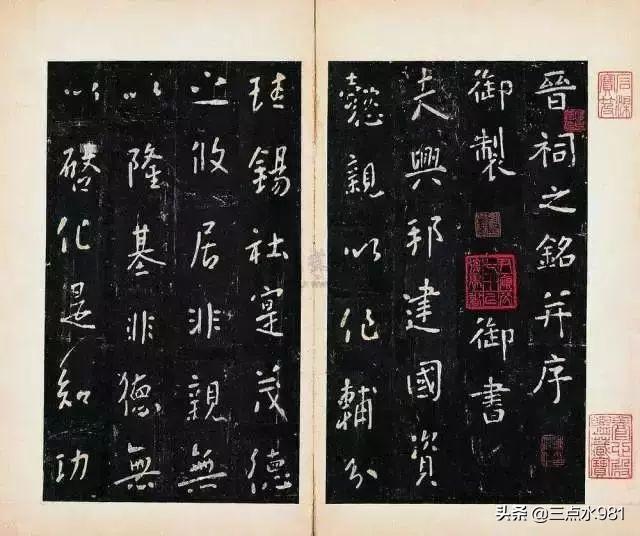 晉祠之銘并序
御製 御書
夫興邦建國資
懿親以作輔分
珪錫社寔茂德
之攸居非親無
以隆基非德無
以啓化是知功
头条 @三点水981